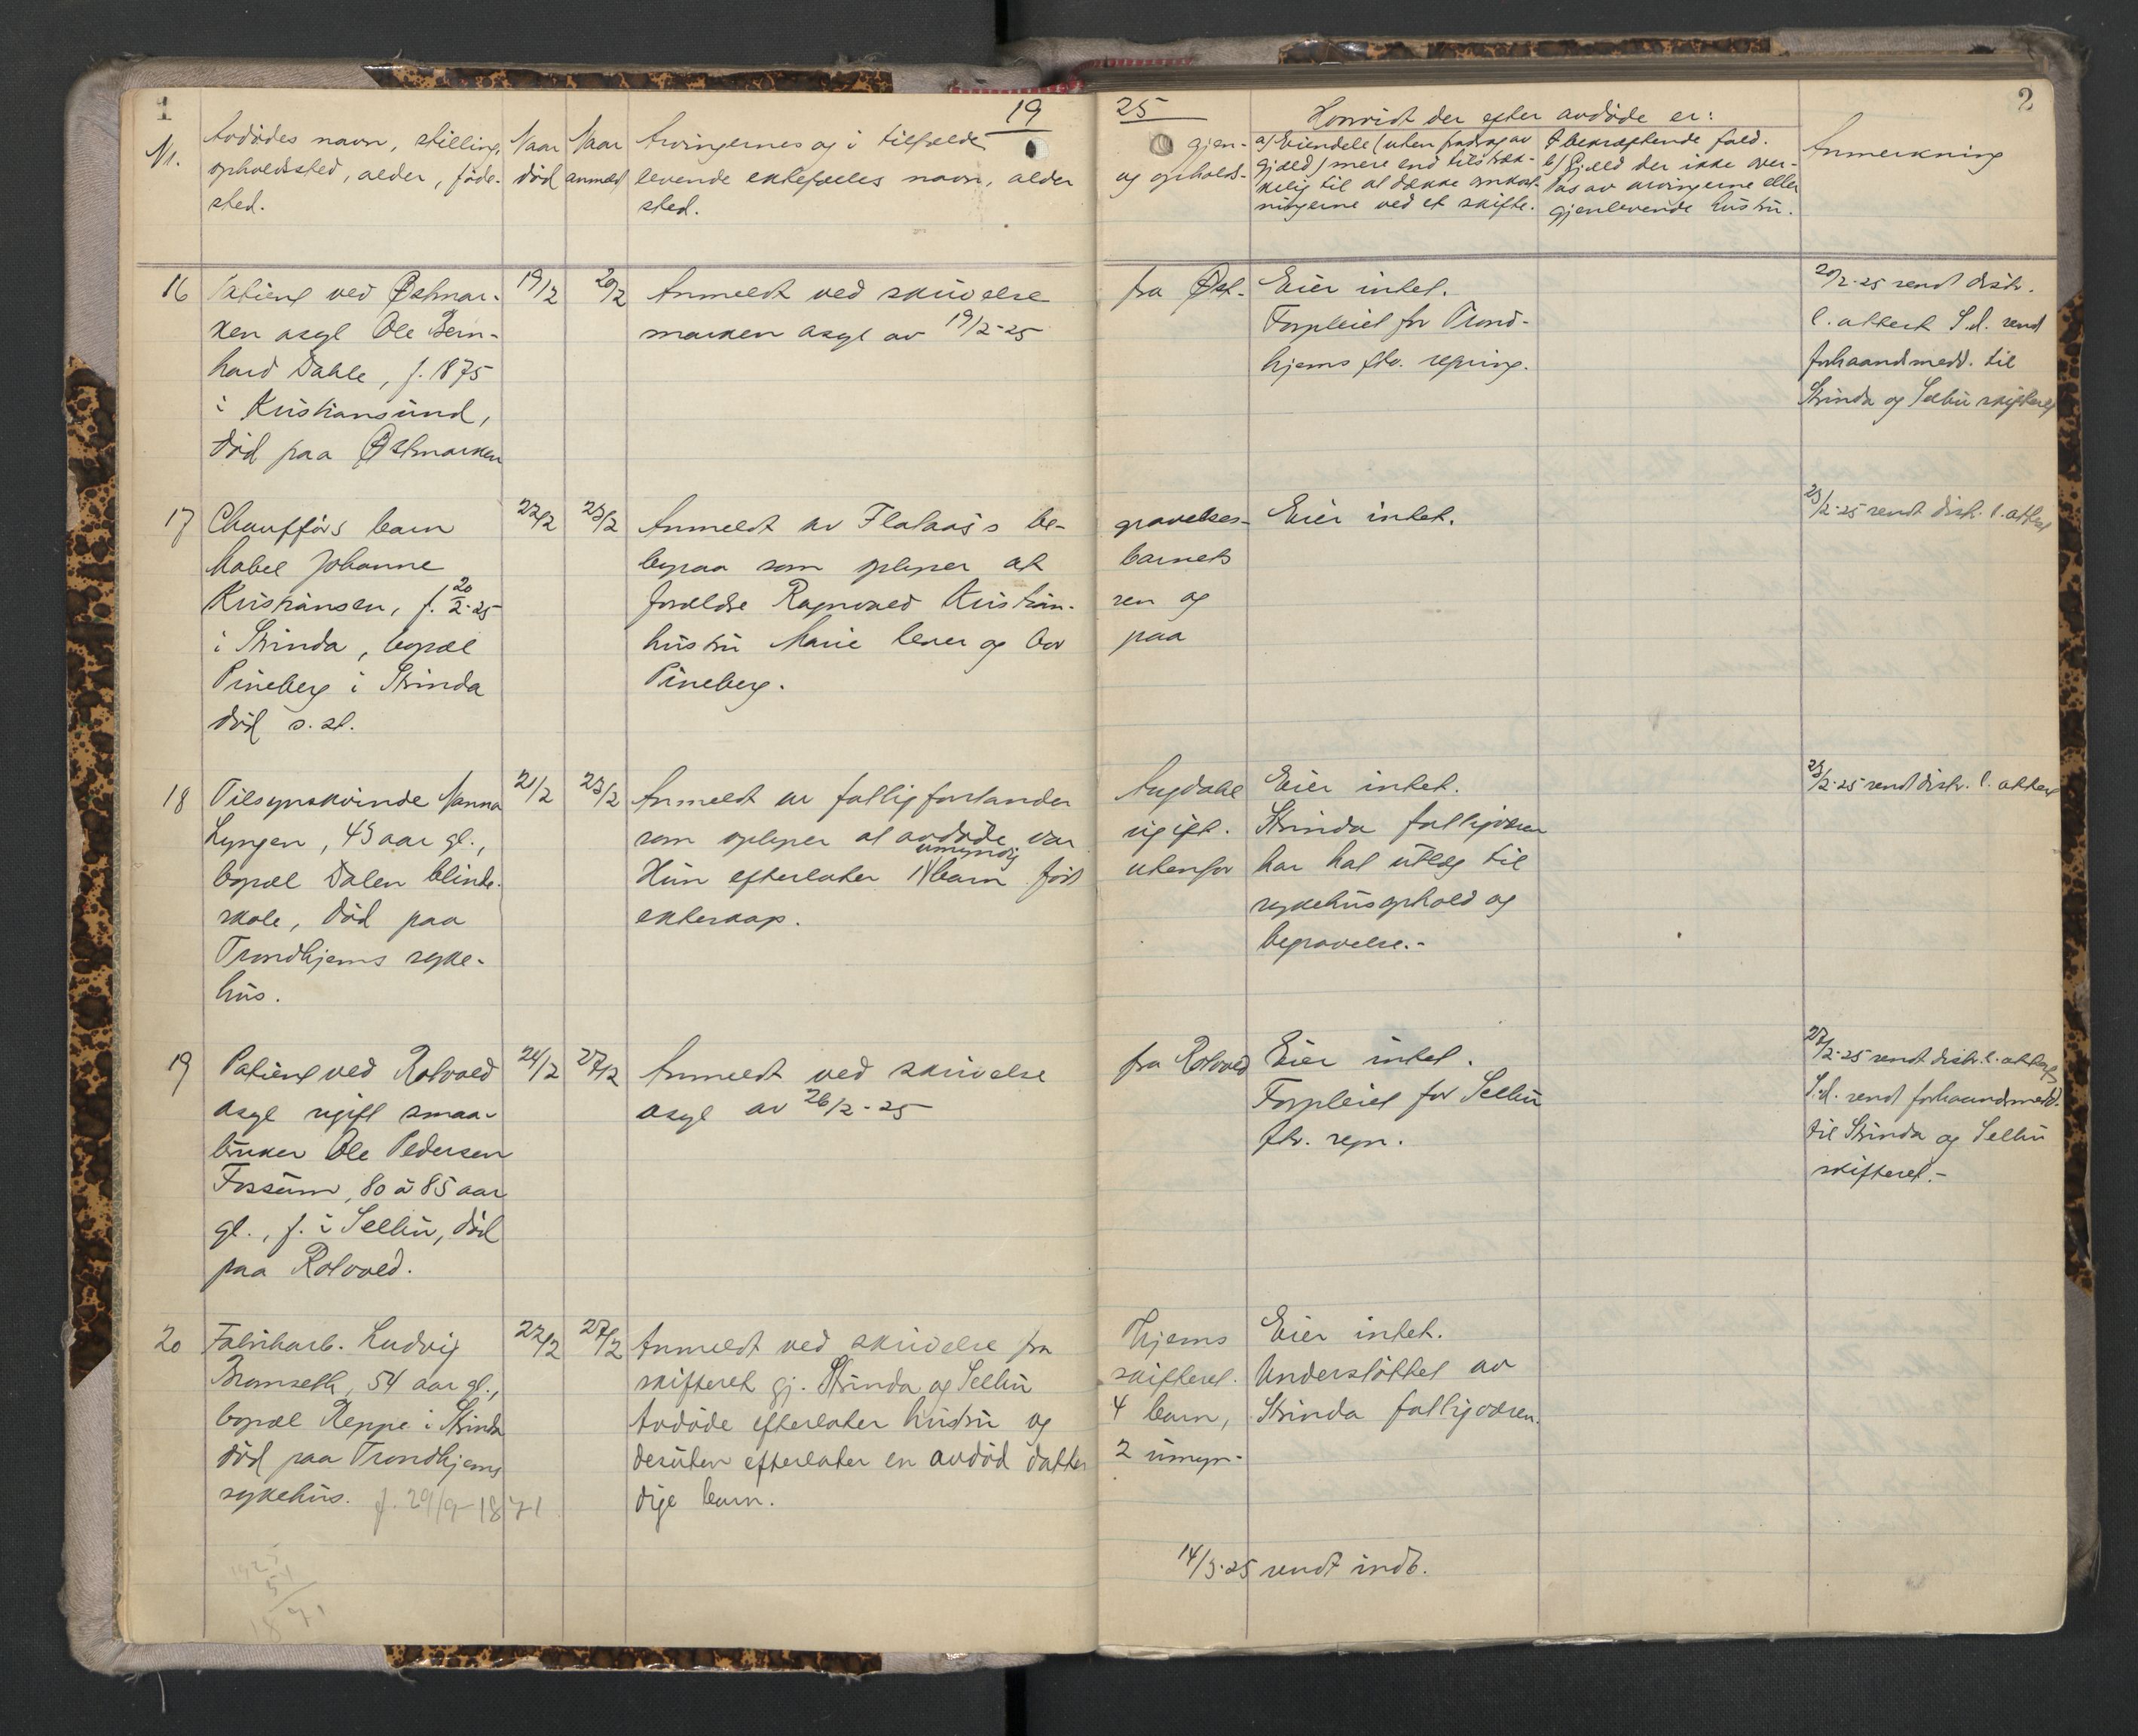 1
19
25
2
Nr.
Avdødes navn, stilling,
opholdssted, alder, føde-
sted.
Naar
død
Naar
anmeldt
Arvingernes og i tilfælde
levende ektefælles navn, alder
sted.
gjen-
og opholds-
Hvorvidt der efter avdøde er:
a) Eiendele (uten fradrag av
gjæld) mere end tilstræk-
kelig til at dække omkost-
ningerne ved et skifte.
I bekræftende fald.
b) Gjæld der ikke over-
tas av arvingerne eller
gjenlevende hustru.
Anmerkning
16
Patient ved Østmar-
ken asyl Ole Bern-
hard Dahle, f. 1875
i Kristiansund,
død paa Østmarken
19/2
20/2
Anmeldt ved skrivelse
marken asyl av 19/2-25
fra Øst-
Eier intet.
Forpleiet for Trond-
hjems ftv. regning.
20/2-25 sendt distr.
l. attest S.d. send
forhaandsmedd. til
Strinda og Selbu skifteret
17
Chaufførs barn
Mabel Johanne
Kristiansen, f. 20/2-25
i Strinda, bopæl
Pineberg i Strinda
død s. st.
22/2
23/2
Anmeldt av Flataas's be-
byraa som oplyser at
forældre Ragnvald Kristian-
hustru Marie lever og bor
Pineberg.
gravelses-
barnets
sen og
paa
Eier intet.
23/2-25 sendt distr. l. attest
18
Tilsynskvinde Nanna
Lyngen, 43 aar gl.,
bopæl Dalen blinde-
skole, død paa
Trondhjems syke-
hus.
21/2
23/2
Anmeldt av fattigforstander
som oplyser at avdøde var
Hun efterlater 1 umyndig barn født
ekteskap.
Augdahl
ugift.
utenfor
Eier intet.
Strinda fattigvæsen
har hat utlæg til
sykehusophold og
begravelse.-
23/2-25 sendt distr. l. attest
19
Patient ved Rotvold
asyl ugift smaa-
bruker Ole Pedersen
Fossum, 80 à 85 aar
gl., f. i Selbu, død
paa Rotvold.
24/2
27/2
Anmeldt ved skrivelse
asyl av 26/2-25
fra Rotvold
Eier intet.
Forpleiet for Selbu
ftv. regn.
27/2-25 sendt distr. l. attest
S.d. sendt forhaandsmedd.
til Strinda og Selbu
skifteret.-
20
Fabrikarb. Ludvig
Bromseth, 54 aar gl.,
bopæl Reppe i Strinda
død paa Trondhjems
sykehus. f. 29/9-1871
22/2
27/2
Anmeldt ved skrivelse fra
skifteret gj. Strinda og Selbu
Avdøde efterlater hustru og
desuten efterlater en avdød datter
dige barn.
Thjems
skifteret.
4 barn,
2 umyn-
Eier intet.
Understøttet av
Strinda fattigvæsen.
14/3-25 sendt indb.
1925
54
1871